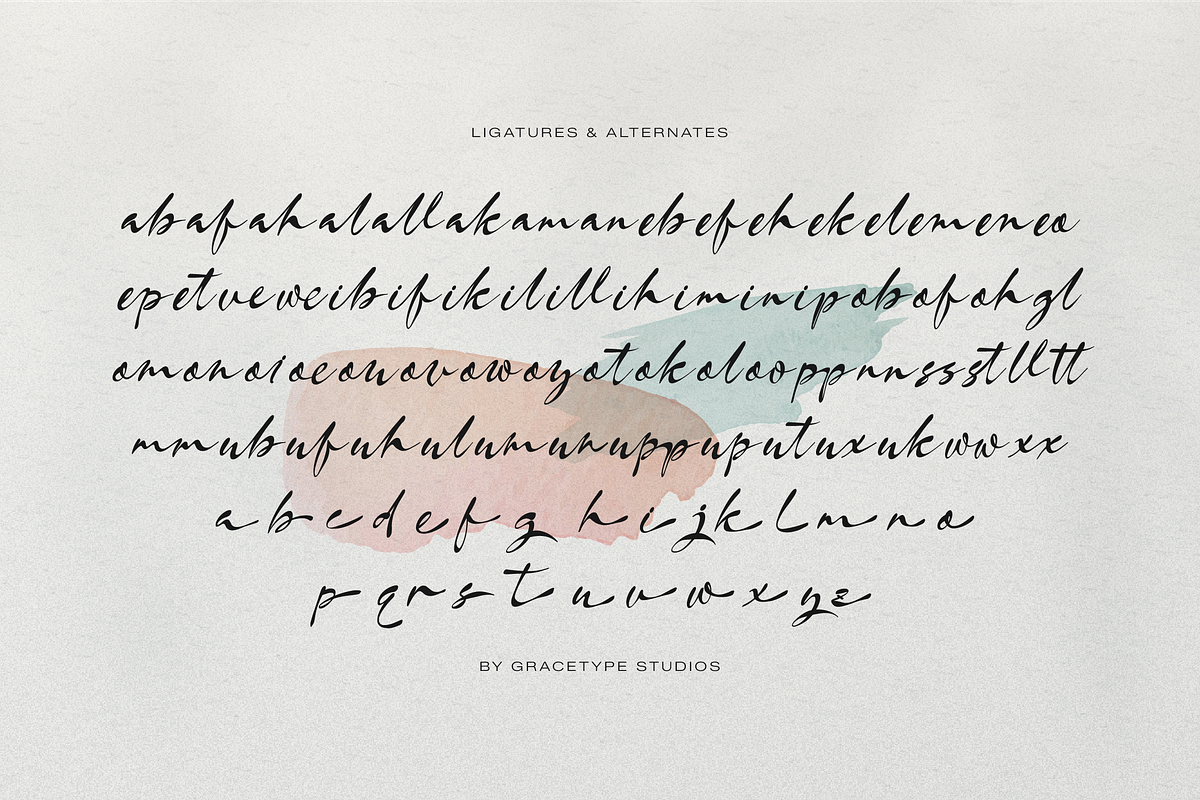 LIGATURES & ALTERNATES
abafahalallakamanebefehekelemeneo
epetveweibifikilillihiminipobofohgl
omonoioeouovowoyotokolooppnnssstlltt
mmubufuhulumunuppuputuxukwwxx
abcdefg hijklmno
pqrstuvwxyz
BY GRACETYPE STUDIOS